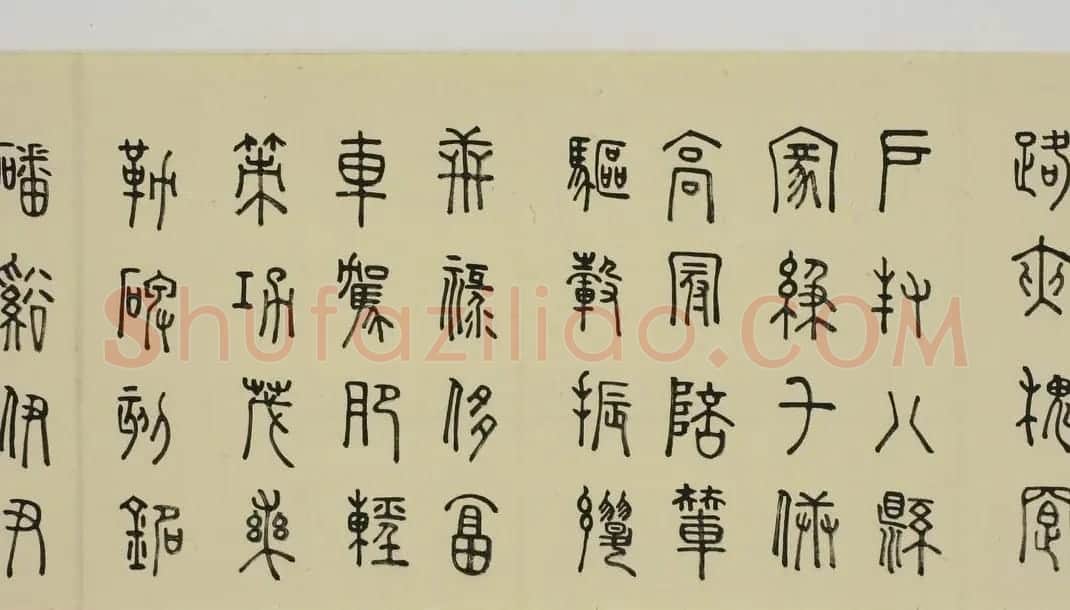 路夾槐卿
户封八縣
家給千兵
高冠陪輦
驅轂振纓
世祿侈富
車駕肥輕
策功茂實
勒碑刻銘
磻谿伊尹
Shufaziliao.COM